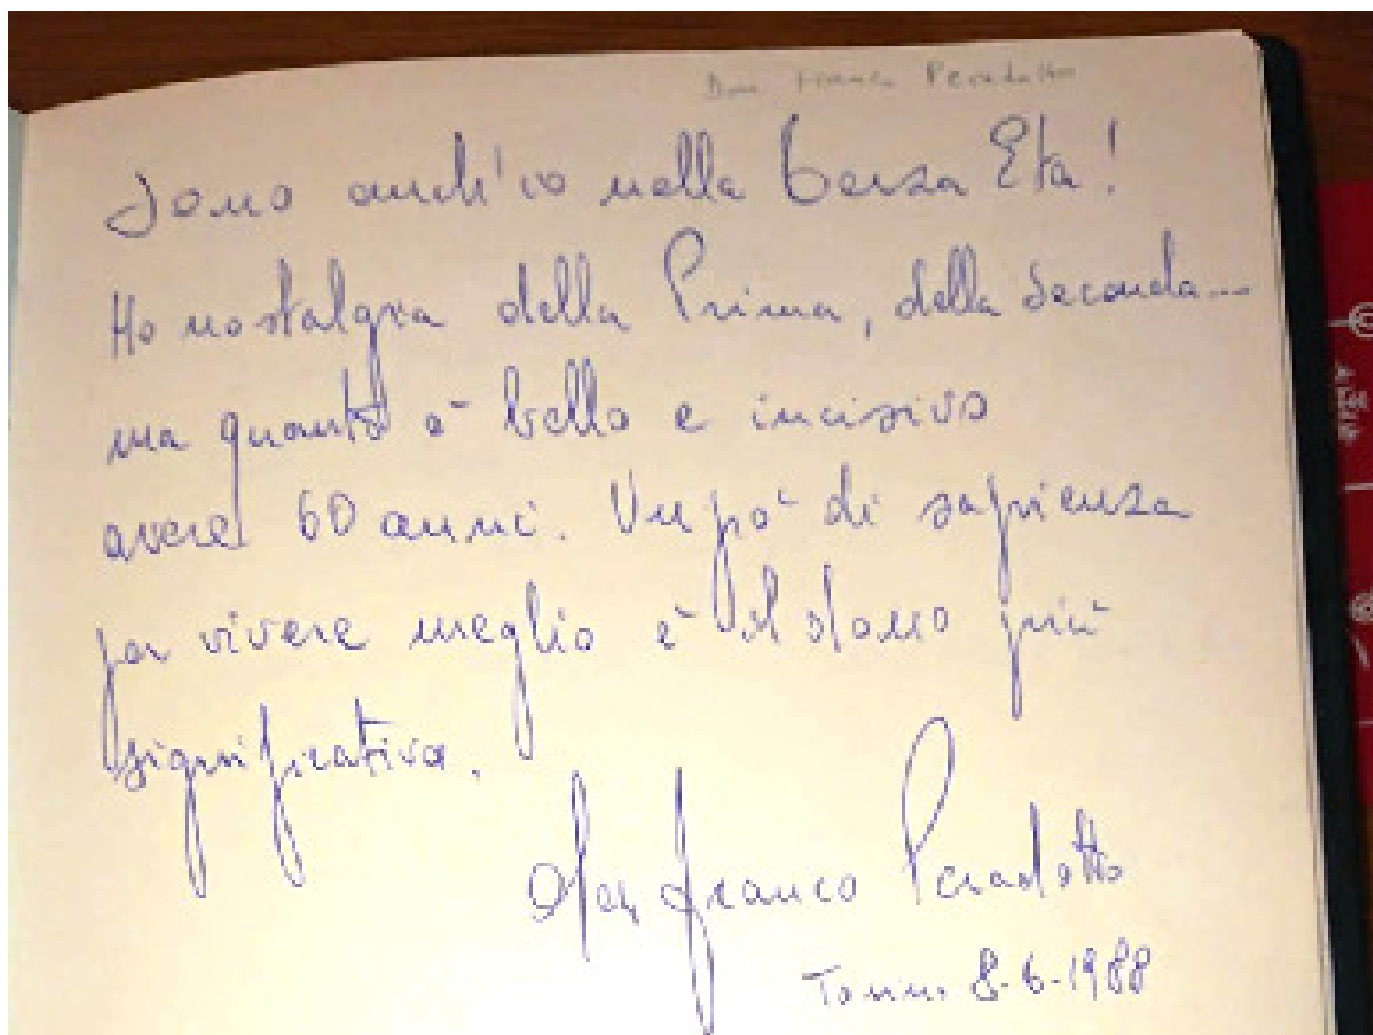 Don Franco Peradotto
Sono anch'io nella Terza Età!
Ho nostalgia della Prima, della Seconda...
ma quanto è bello e incisivo
avere 60 anni. Un po' di sapienza
per vivere meglio è il dono più
significativo.
don Franco Peradotto
Torino 8-6-1988